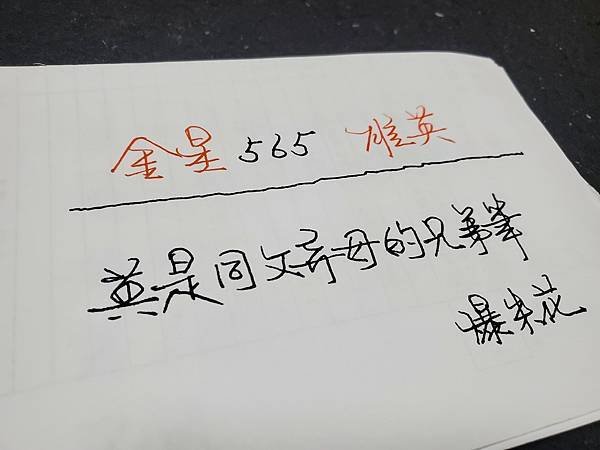 金星 565 雄英
是同父异母的兄弟筆
爆米花